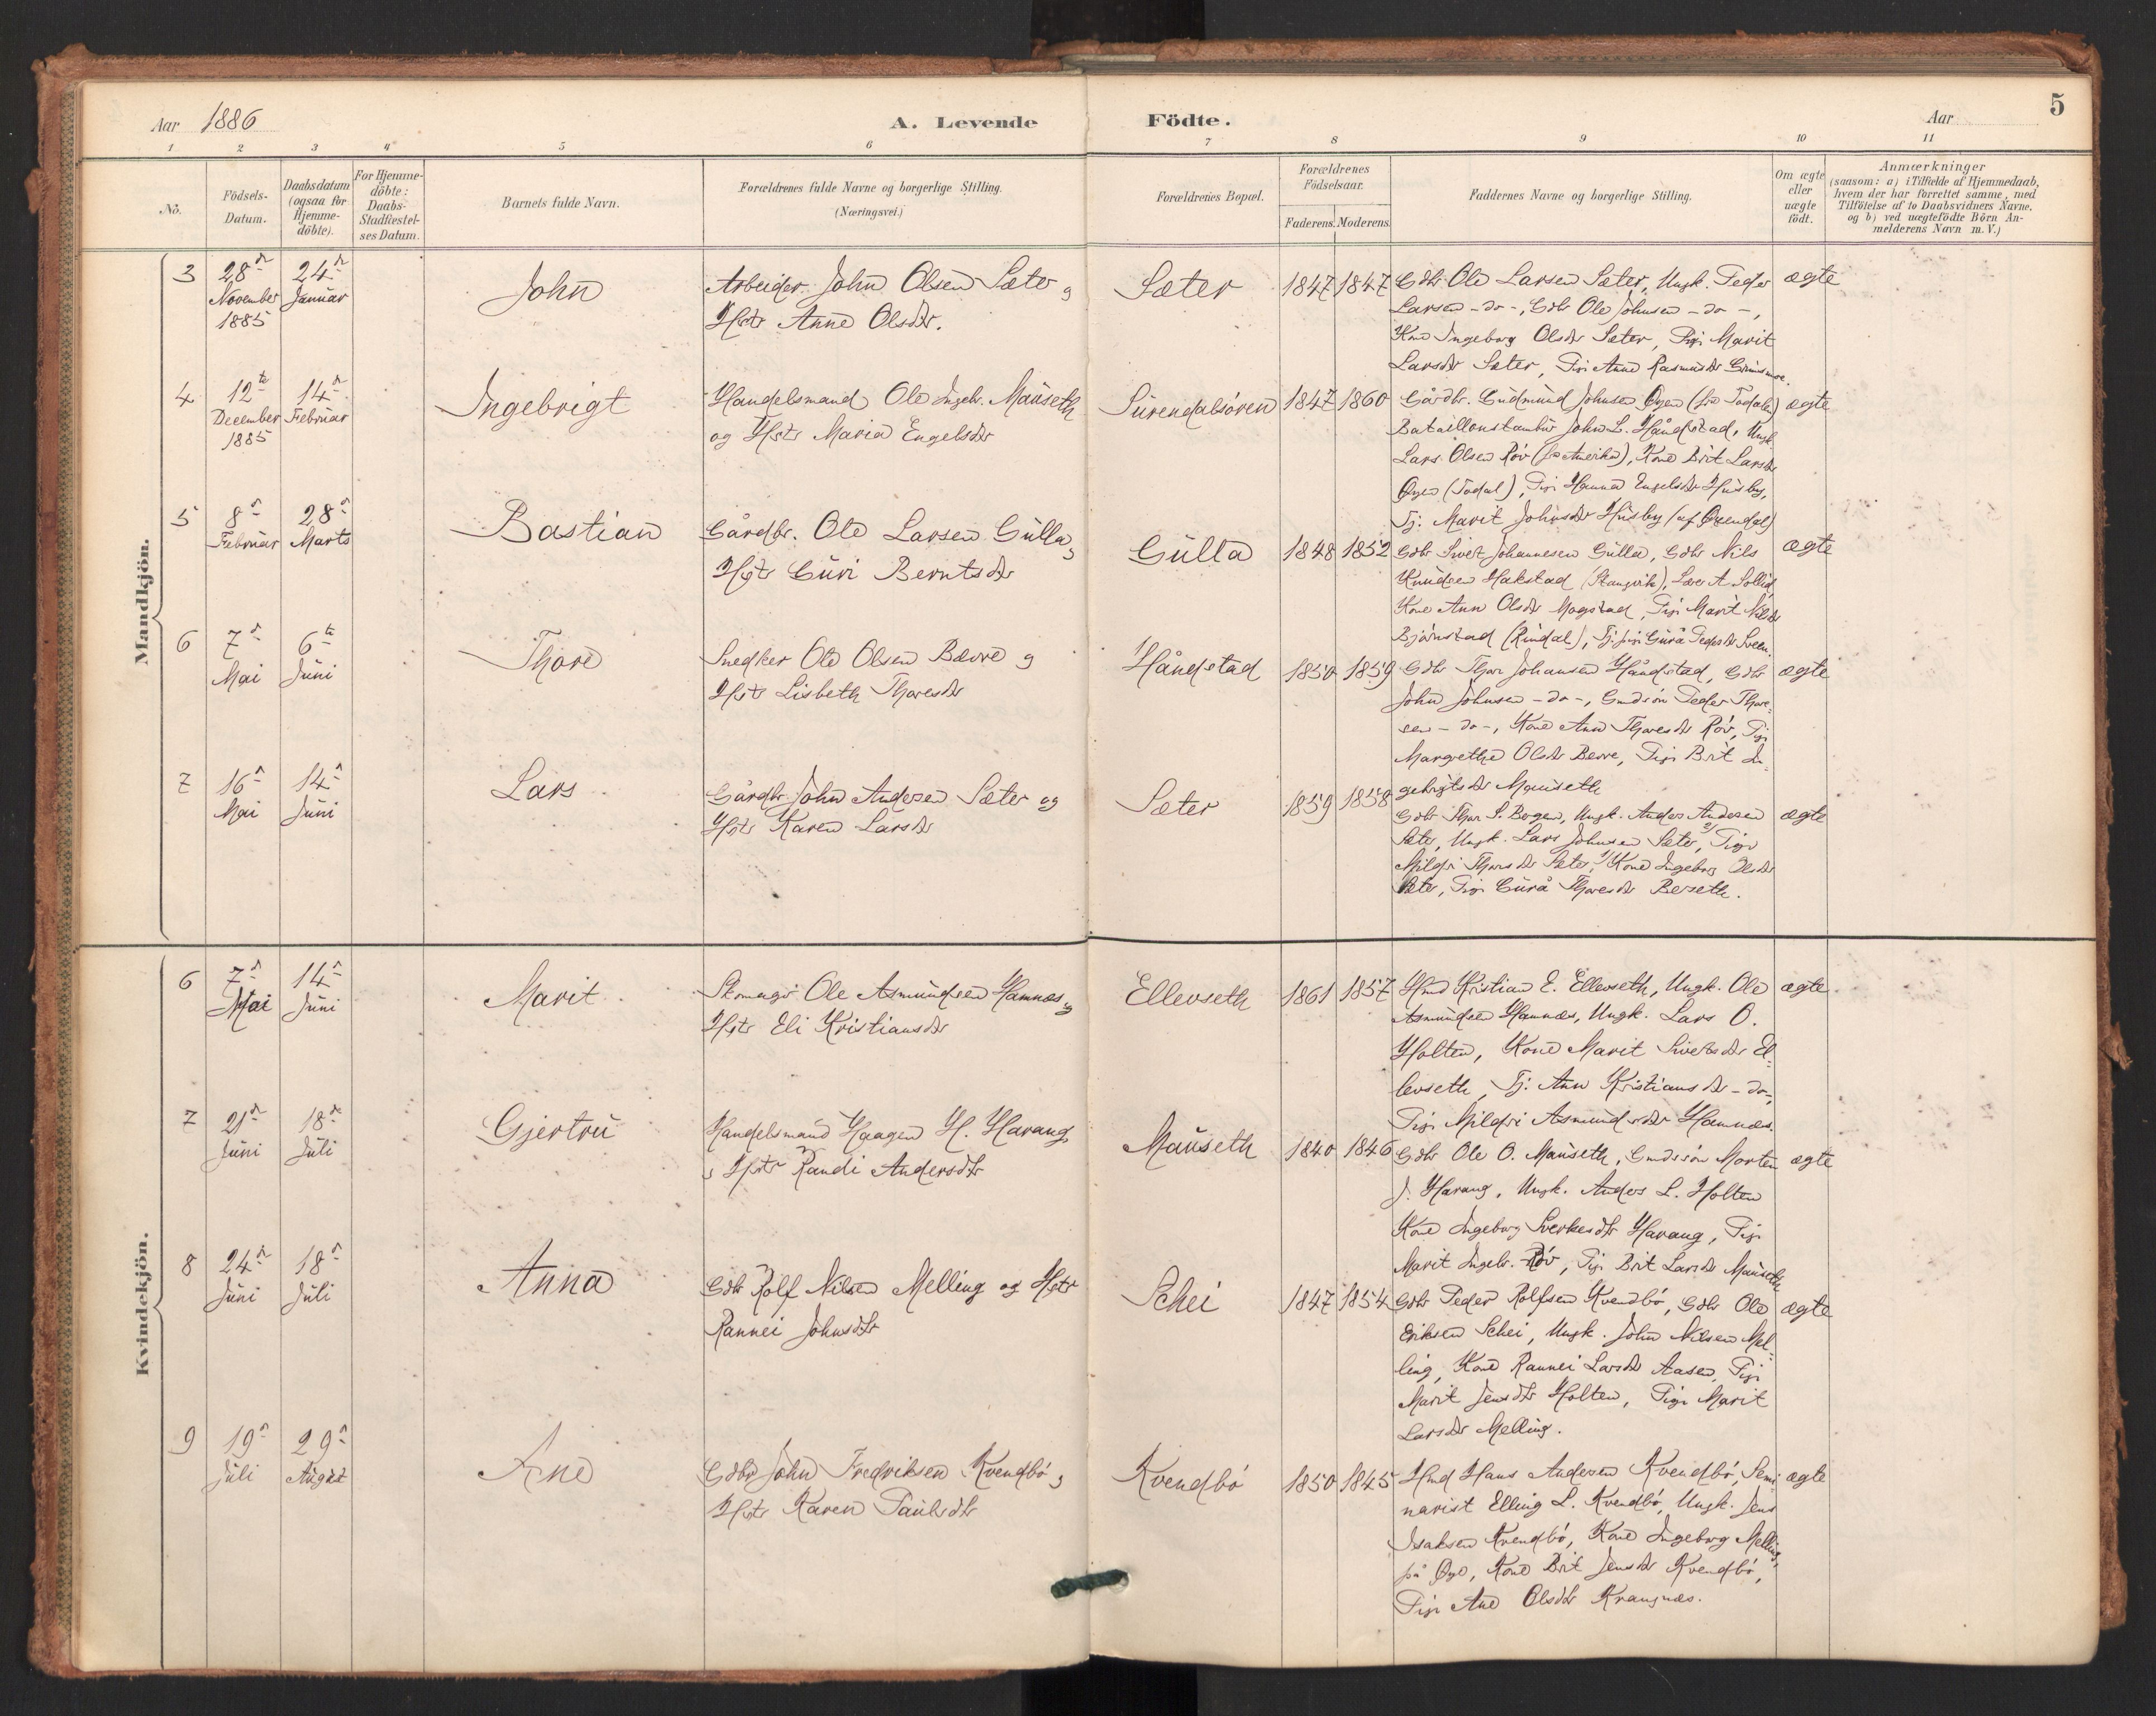 Aar 1886
A. Levende
Födte.
Aar
5
1 2 3 4 5 6 7 8 9 10 11
No.
Födsels-Datum.
Daabsdatum (ogsaa for Hjemme-döbte).
For Hjemme-döbte: Daabs-Stadfæstel-ses Datum.
Barnets fulde Navn.
Forældrenes fulde Navne og borgerlige Stilling. (Næringsvei.)
Forældrenes Bopæl.
Forældrenes Födselsaar.
Faderens. Moderens.
Faddernes Navne og borgerlige Stilling.
Om ægte eller uægte födt.
Anmærkninger
(saasom: a) i Tilfælde af Hjemmedaab,
hvem der har forrettet samme, med
Tilföielse af to Daabsvidners Navne,
og b) ved uægtefödte Börn An-
melderens Navn m. V.)
Mandkjön.
3
28de November 1885
24de Januar
John
Arbeider John Olsen Sæter og
Hstr Anne Olsdtr.
Sæter
1847 1847
Gdbr Ole Larsen Sæter, Ungk. Peder
Larsen -do-, Gdbr Ole Johnsen -do-,
Kone Ingeborg Olsdtr Sæter, Pige Marit
Larsdtr Sæter, Pige Anne Rasmusdtr
ægte
4
12te December 1885
14de Februar
Ingebrigt
Handelsmand Ole Ingebr. Mauseth
og Hstr Maria Engelsdtr
Surendalsören
1847 1860
Gårdbr. Gudmund Johnsen Öyen (fra Todalen)
Bataillonstambur John L. Håndstad, Ungk.
Lars Olsen Röv (fra Amerika), Kone Brit Larsdtr
Öyen (Todal), Pige Hanna Engelsdtr Husby,
Pj. Marit Johnsdtr Husby (af Öxendal)
ægte
5
8de Februar
28de Marts
Bastian
Gårdbr. Ole Larsen Gulla og
Hstr Guri Berntsdtr
Gulla
1848 1852
Gdbr Sivert Johannesen Gulla, Gdbr Nils
Knudsen Hakstad (Stangvik), A. Sollid,
Kone Ann Olsdtr Mogstad, Pige Marit Nilsdtr
Björnstad (Rindal), Tj. pige Gurå Pedersdtr Sveen.
ægte
6
7de Mai
6te Juni
Thore
Snedker Ole Olsen Bævre og
Hstr Lisbeth Thoresdtr
Håndstad
1850 1859
Gdbr Thor Johansen Håndstad, Gdbr
John Johnsen -do-, Gmdsön Peder Thore-
sen -do-, Kone Ann Thoresdtr Röv, Pige
Margrethe Olsdtr Bævre, Pige Brit In-
gebrigtsdtr Mauseth
ægte
7
16de Mai
14de Juni
Lars
Gårdbr. John Andersen Sæter og
Hstr Karen Larsdtr
Sæter
1859 1858
Gdbr Thor S. Bergen, Ungk. Anders Andersen
Sæter, Ungk. Lars Johnsen Sæter, 2) Pige
Mildri Thoresdtr Sæter, 1) Kone Ingeborg Olsdtr
Sæter, Pige Gurå Thoresdtr Berseth.
ægte
Kvindekjön.
6
7de Mai
14de Juni
Marit
Skomager Ole Asmundsen Hamnæs og
Hstr Eli Kristiansdtr
Ellevseth
1861 1857
Hmd Kristian E. Ellevseth, Ungk. Ole
Asmundsen Hamnæs, Ungk. Lars O.
Holten, Kone Marit Sivertsdtr El-
levseth, Pj. Ann Kristiansdtr -do-,
Pige Mildri Asmundsdtr Hamnæs.
ægte
7
21de Juni
18de Juli
Gjertru
Handelsmand Haagen H. Harang
og Hstr Randi Andersdtr
Mauseth
1840 1846
Gdbr Ole O. Mauseth, Gmdssön Morten
J. Harang, Ungk. Anders L. Holten
Kone Ingeborg Sverkesdtr Harang, Pige
Marit Ingebr. Röv, Pige Brit Larsdtr Mauseth
ægte
8
24de Juni
18de Juli
Anna
Gdbr Rolf Nilsen Melling og Hstr
Rannei Johnsdtr
Schei
1847 1854
Gdbr Peder Rolfsen Kvendbö, Gdbr Ole
Eriksen Schei, Ungk. John Nilsen Mel-
ling, Kone Rannei Larsdtr Aasen, Pige
Marit Jensdtr Holten, Pige Marit
Larsdtr Melling.
ægte
9
19de Juli
29de August
Ane
Gdbr John Fredriksen Kvendbö og
Hstr Karen Paulsdtr
Kvendbö
1850 1845
Hmd Hans Andersen Kvendbö, Semi-
narist Elling L. Kvendbö, Ungk. Jens
Isaksen Kvendbö, Kone Ingeborg Melling,
på Öye, Kone Brit Jensdtr Kvendbö,
Pige Ane Olsdtr Krangnæs.
ægte